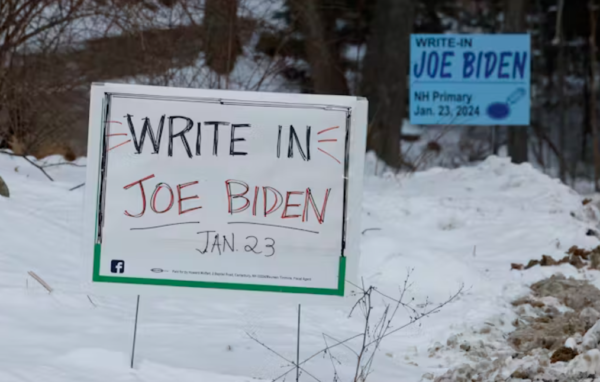 WRITE IN
JOE BIDEN
JAN. 23
WRITE-IN
JOE BIDEN
NH Primary
Jan. 23, 2024